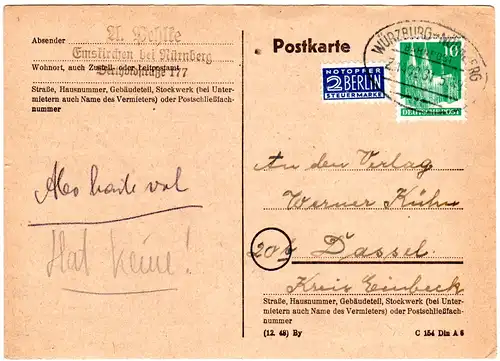 Absender
A. Pehlke
Emskirchen bei Nürnberg
Wohnort, auch Zustell- oder Leitpostamt
177
Straße, Hausnummer, Gebäudeteil, Stockwerk (bei Unter-
mietern auch Name des Vermieters) oder Postschließfach-
nummer
Hat keine!
Postkarte
NOTOPFER
2 BERLIN
STEUERMARKE
WÜRZBURG-NÜRNBERG
10
DEUTSCHE POST
An den Verlag
Werner Kühn
20b Dassel
Kreis Einbeck
Straße, Hausnummer, Gebäudeteil, Stockwerk (bei Unter-
mietern auch Name des Vermieters) oder Postschließfach-
nummer
(12. 48) By
C 154 Din A 6